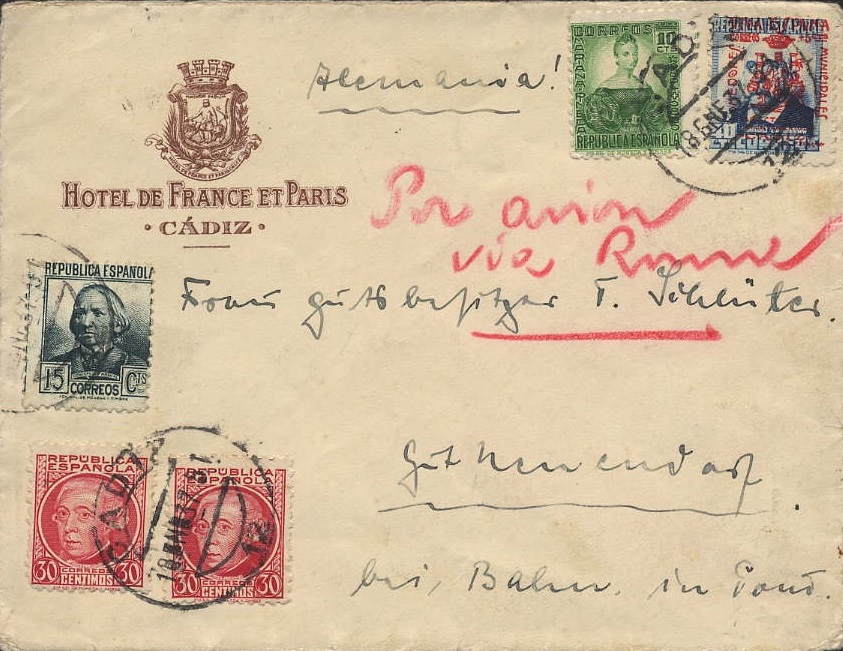 Alemania!
CORREOS
10
CTS
MARIANA PINEDA
REPUBLICA ESPAÑOLA
VIVA ESPAÑA
HOTEL DE FRANCE ET PARIS
· CÁDIZ ·
Por avion
via Rome
Frau Gutsbesitzer T. Schlüter.
REPUBLICA ESPAÑOLA
15 CORREOS CTS
bei Bahn in Pom.
REPUBLICA
ESPAÑOLA
CORREOS
30 CENTIMOS 30
REPUBLICA
ESPAÑOLA
CORREOS
30 CENTIMOS 30
CADIZ